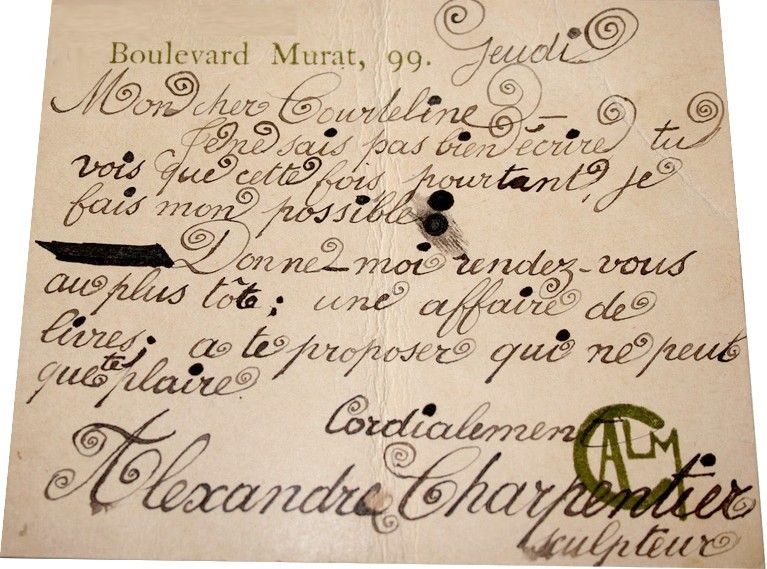 Boulevard Murat, 99. Jeudi
Mon cher Courteline —
Je ne sais pas bien écrire tu
vois que cette fois pourtant, je
fais mon possible.
Donne-moi rendez-vous
au plus tôt; une affaire de
livres; a te proposer qui ne peut
que te plaire
Cordialement
CALM
Alexandre Charpentier
sculpteur